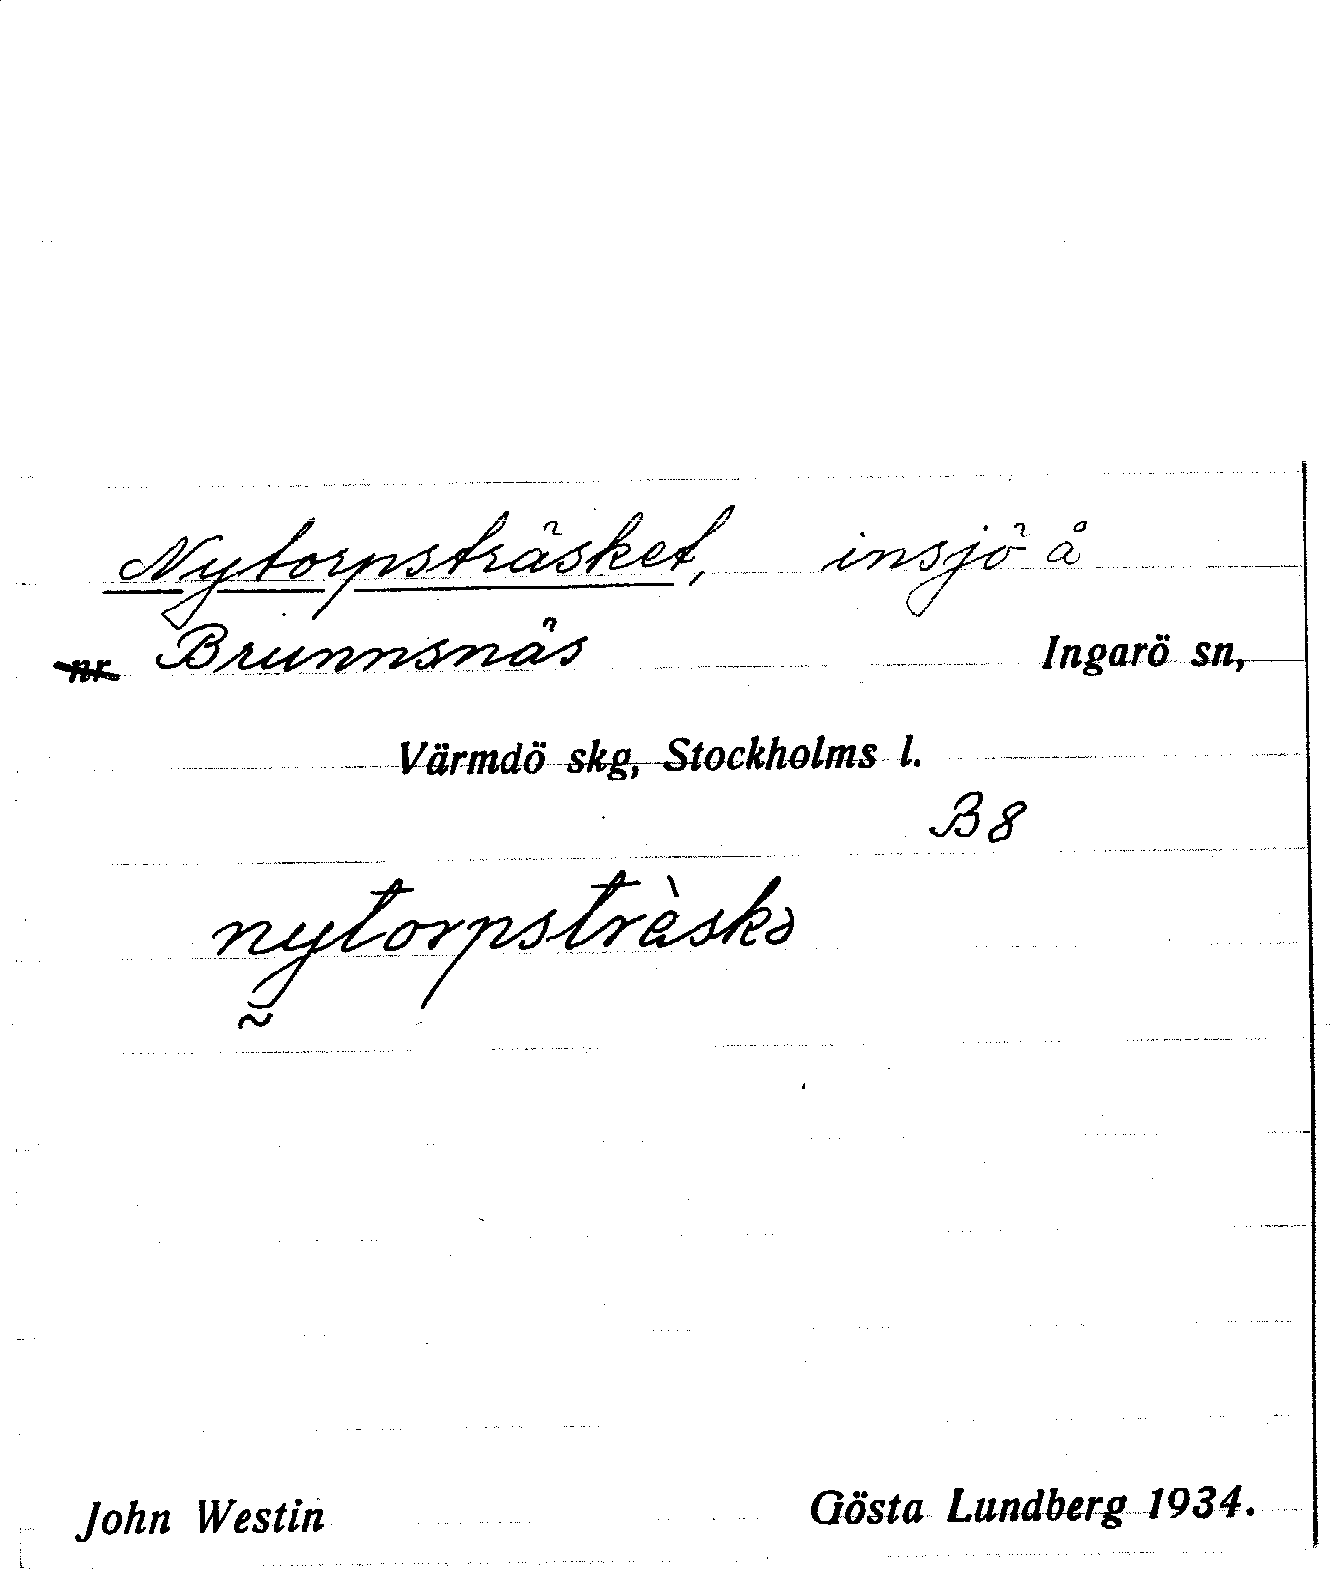 Nytorpsträsket, insjö å
nr Brunnsnäs Ingarö sn,
Värmdö skg, Stockholms l.
B 8
nytorpsträ̀skə
John Westin Gösta Lundberg 1934.